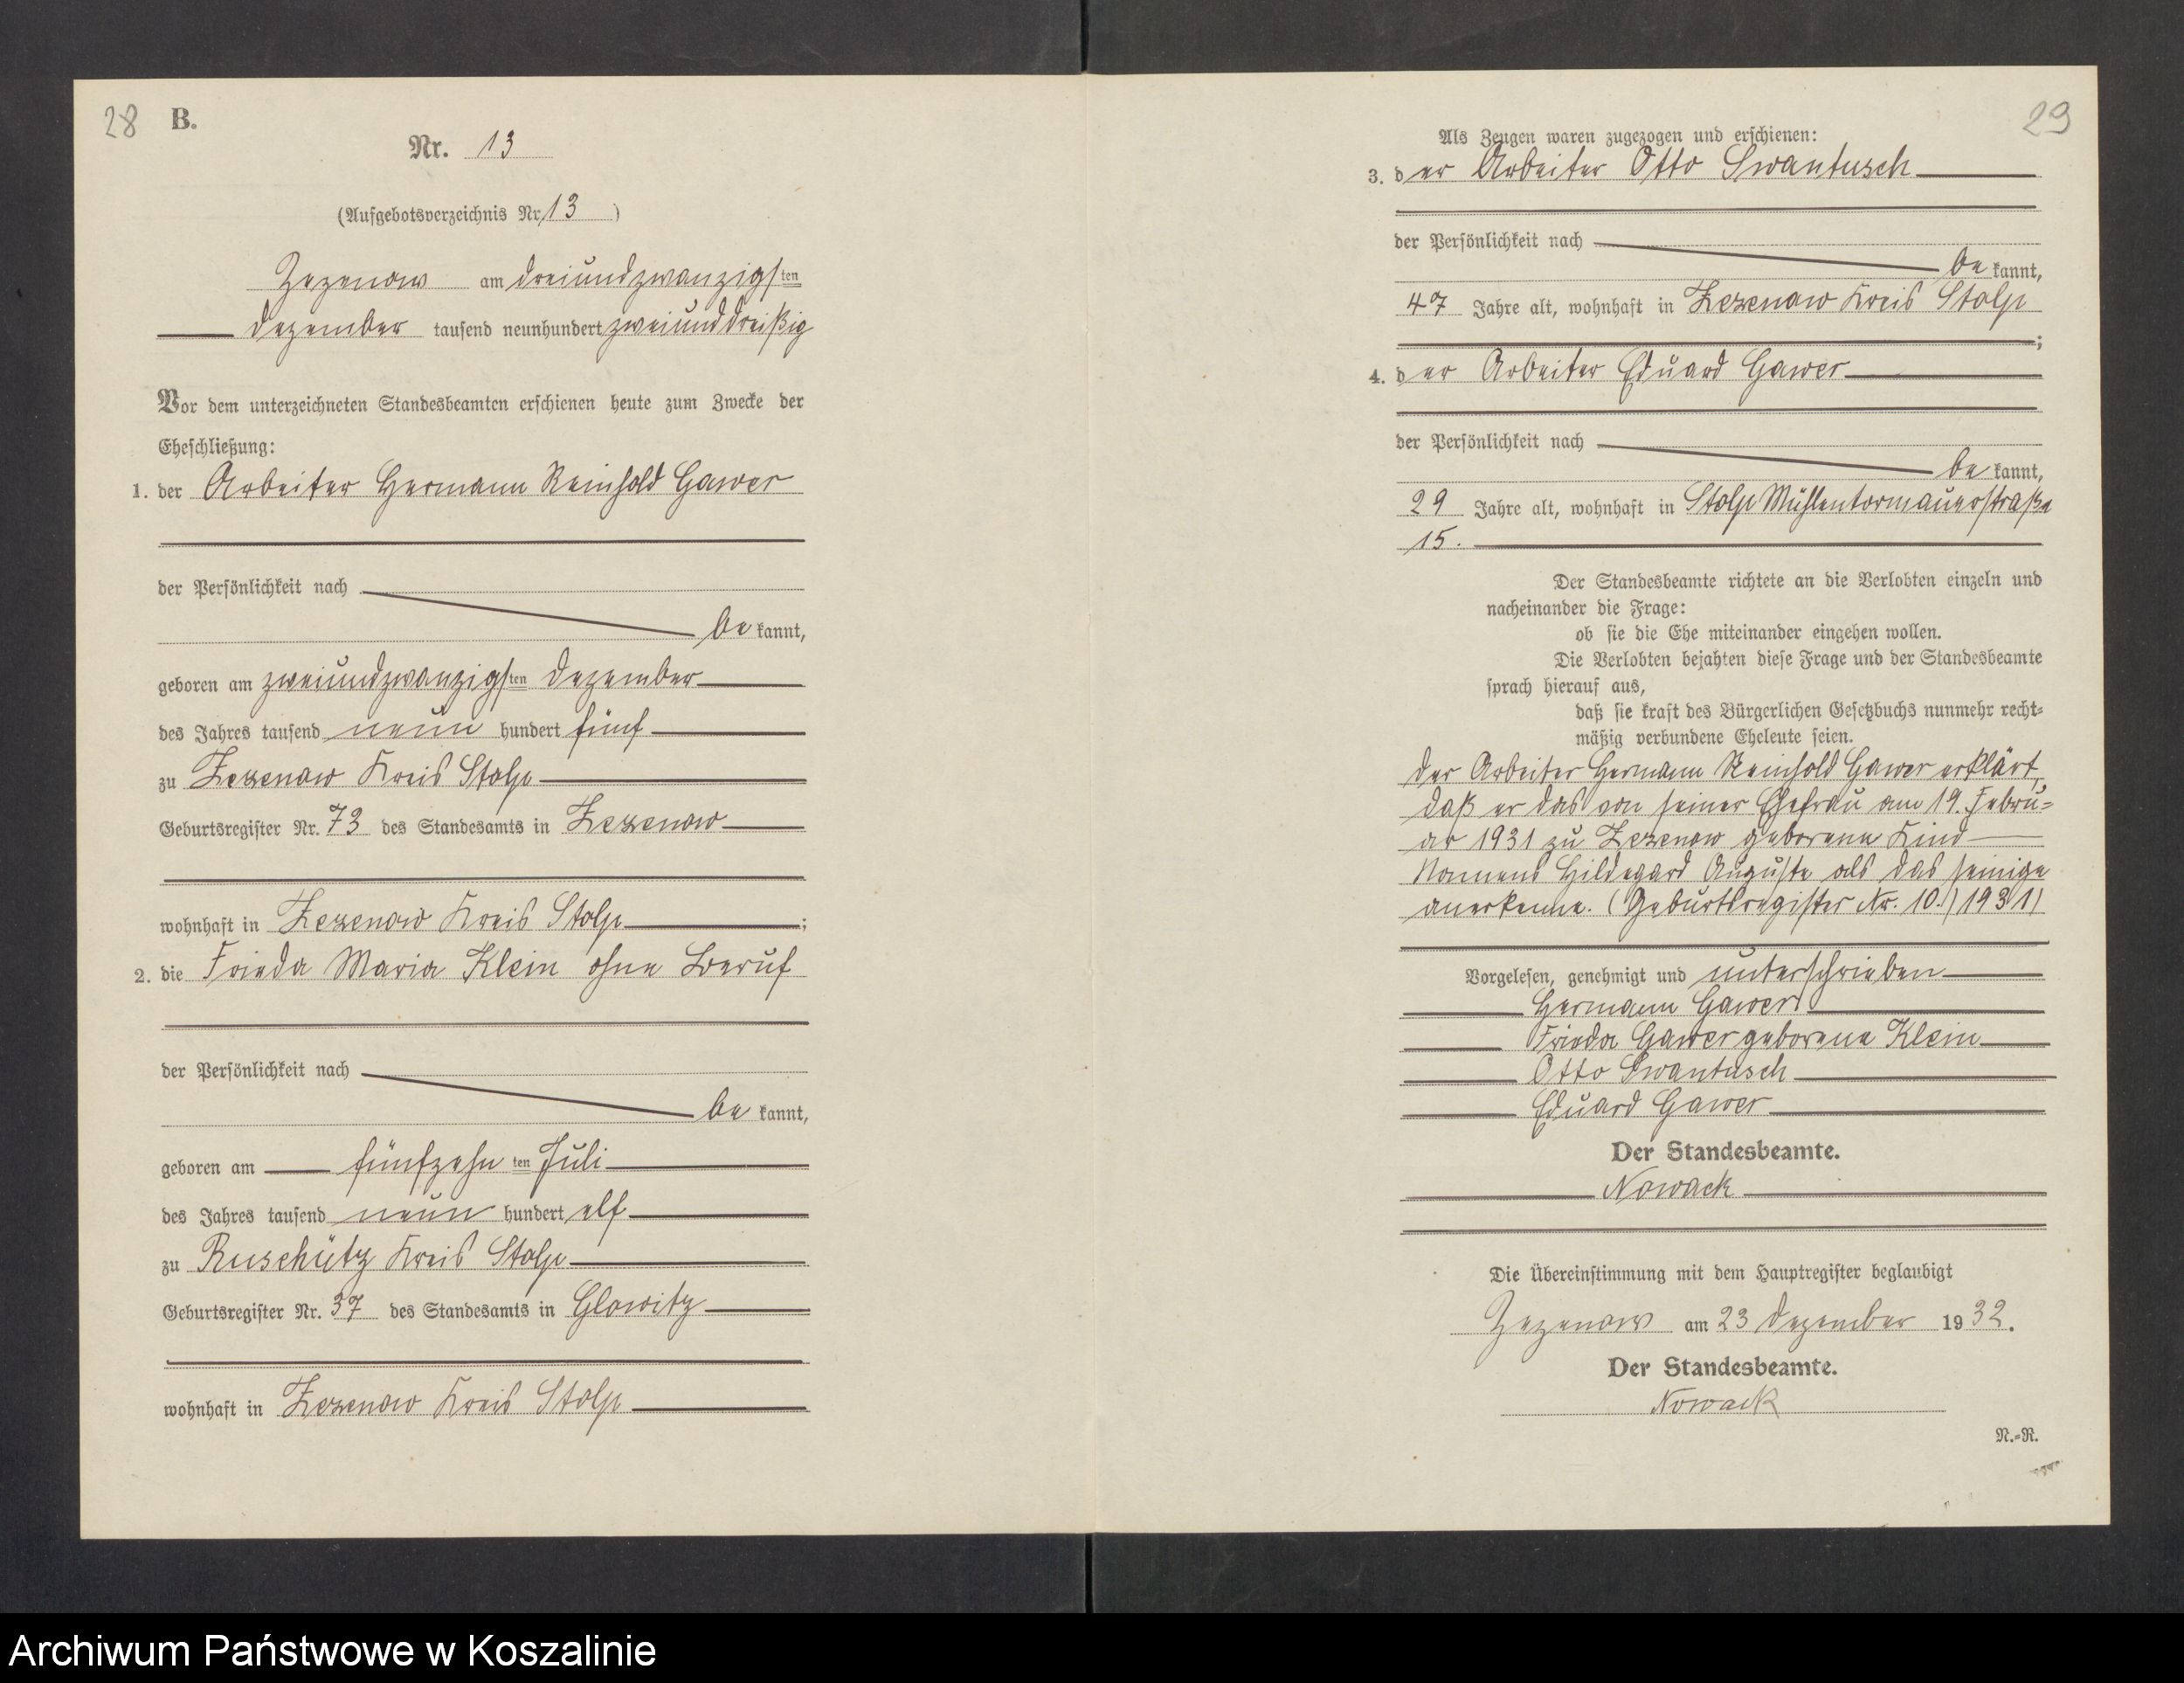 28 B.
Nr. 13
(Aufgebotsverzeichnis Nr. 13)
Zezenow am dreiundzwanzigsten
Dezember tausend neunhundert zweiunddreißig
Vor dem unterzeichneten Standesbeamten erschienen heute zum Zwecke der
Eheschließung:
1. der Arbeiter Hermann Reinhold Gawer
der Persönlichkeit nach
bekannt,
geboren am zweiundzwanzigsten Dezember
des Jahres tausend neun hundert fünf
zu Zezenow Kreis Stolp
Geburtsregister Nr. 73 des Standesamts in Zezenow
wohnhaft in Zezenow Kreis Stolp;
2. die Frieda Maria Klein ohne Beruf
der Persönlichkeit nach
bekannt,
geboren am fünfzehnten Juli
des Jahres tausend neun hundert elf
zu Ruschütz Kreis Stolp
Geburtsregister Nr. 37 des Standesamts in Glowitz
wohnhaft in Zezenow Kreis Stolp
29
Als Zeugen waren zugezogen und erschienen:
3. der Arbeiter Otto Swantusch
der Persönlichkeit nach
bekannt,
47 Jahre alt, wohnhaft in Zezenow Kreis Stolp
;
4. der Arbeiter Eduard Gawer
der Persönlichkeit nach
bekannt,
29 Jahre alt, wohnhaft in Stolp Mühlentormauerstraße
15.
Der Standesbeamte richtete an die Verlobten einzeln und
nacheinander die Frage:
ob sie die Ehe miteinander eingehen wollen.
Die Verlobten bejahten diese Frage und der Standesbeamte
sprach hierauf aus,
daß sie kraft des Bürgerlichen Gesetzbuchs nunmehr recht-
mäßig verbundene Eheleute seien.
Der Arbeiter Hermann Reinhold Gawer erklärt,
daß er das von seiner Ehefrau am 19. Febru-
ar 1931 zu Zezenow geborene Kind
Namens Hildegard Auguste als das seinige
anerkenne. (Geburtsregister Nr. 10.) 1931)
Vorgelesen, genehmigt und unterschrieben
Hermann Gawer
Frieda Gawer geborene Klein
Otto Swantusch
Eduard Gawer
Der Standesbeamte.
Nowack
Die Übereinstimmung mit dem Hauptregister beglaubigt
Zezenow am 23 Dezember 1932.
Der Standesbeamte.
Nowack
N.-R.
Archiwum Państwowe w Koszalinie